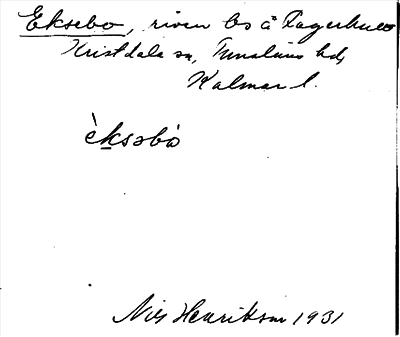 Eksebo, riven bs å Fagerhult
Kristdala sn, Tunaläns hd,
Kalmar l.
èksəbò
Nils Henrikson 1931